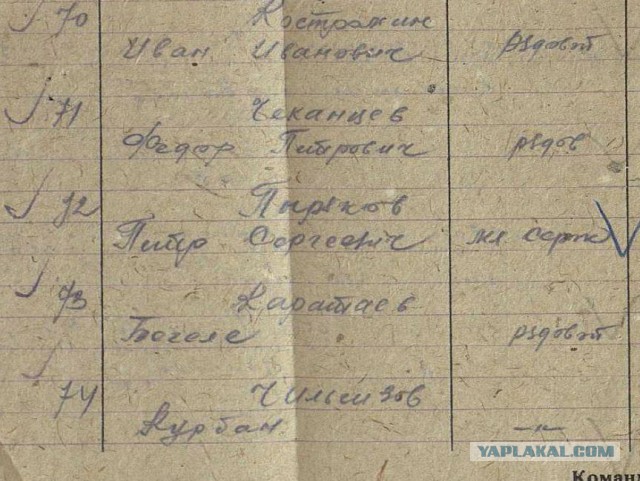 70 Костромин
Иван Иванович рядовой
71 Чеканцев
Федор Петрович рядов
72 Пыряков
Петр Сергеевич мл серж
73 Каратаев
Бегеле рядовой
74 Чильмизов
Курбан -"-
YAPLAKAL.COM
Команд